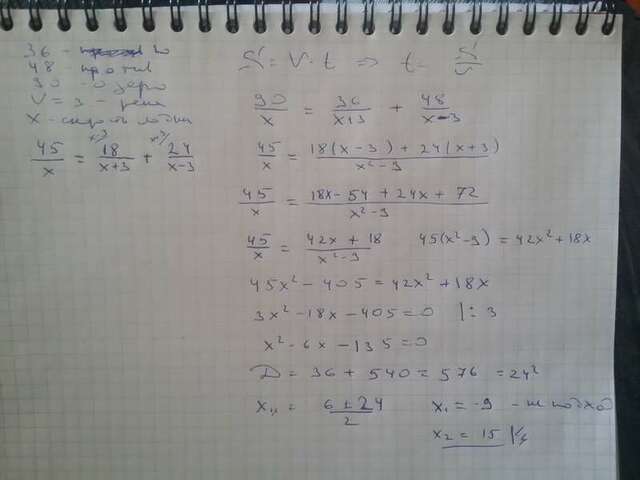 36 - по
48 - против
90 - озеро
V = 3 - река
X - скорость лодки
45/x = 18/(x+3) + 24/(x-3)
S = V · t => t = S/v
90/x = 36/(x+3) + 48/(x-3)
45/x = (18(x-3) + 24(x+3))/(x²-9)
45/x = (18x - 54 + 24x + 72)/(x²-9)
45/x = (42x + 18)/(x²-9) 45(x²-9) = 42x² + 18x
45x² - 405 = 42x² + 18x
3x² - 18x - 405 = 0 |: 3
x² - 6x - 135 = 0
D = 36 + 540 = 576 = 24²
x₁,₂ = (6 ± 24)/2 x₁ = -9 - не подход
x₂ = 15